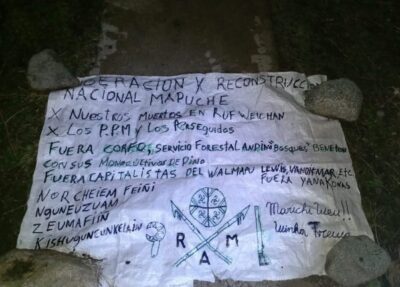 LIBERACION Y RECONSTRUCCI
NACIONAL MAPUCHE
X NUESTROS MUERTOS EN RUF WEICHAN
X LOS P.P.M Y LOS PERSEGUIDOS
FUERA CORFO, SERVICIO FORESTAL ANDINO BOSQUES BENETTON
CON SUS MONOCULTIVOS DE PINO
FUERA CAPITALISTAS DEL WALMAPU LEWIS, VANDITMAR ETC
FUERA YANAKONAS
NOR CHEIEM FEIÑI
NGUNEUZUAM
ZEUMAFIIÑ
KISHUGUNEUNKELAIÑ
Marichi Weu!!
R A M